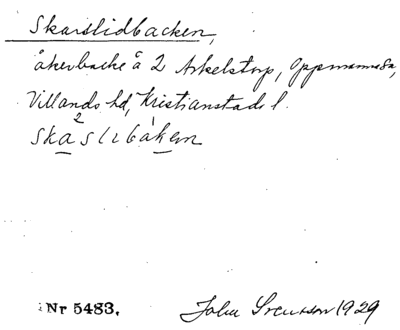 Skarslidbacken,
åkerbacke å 2 Arkelstorp, Oppmanna sn,
Villands hd, Kristianstads l.
skaslibaken
Nr 5483. John Svensson 1929